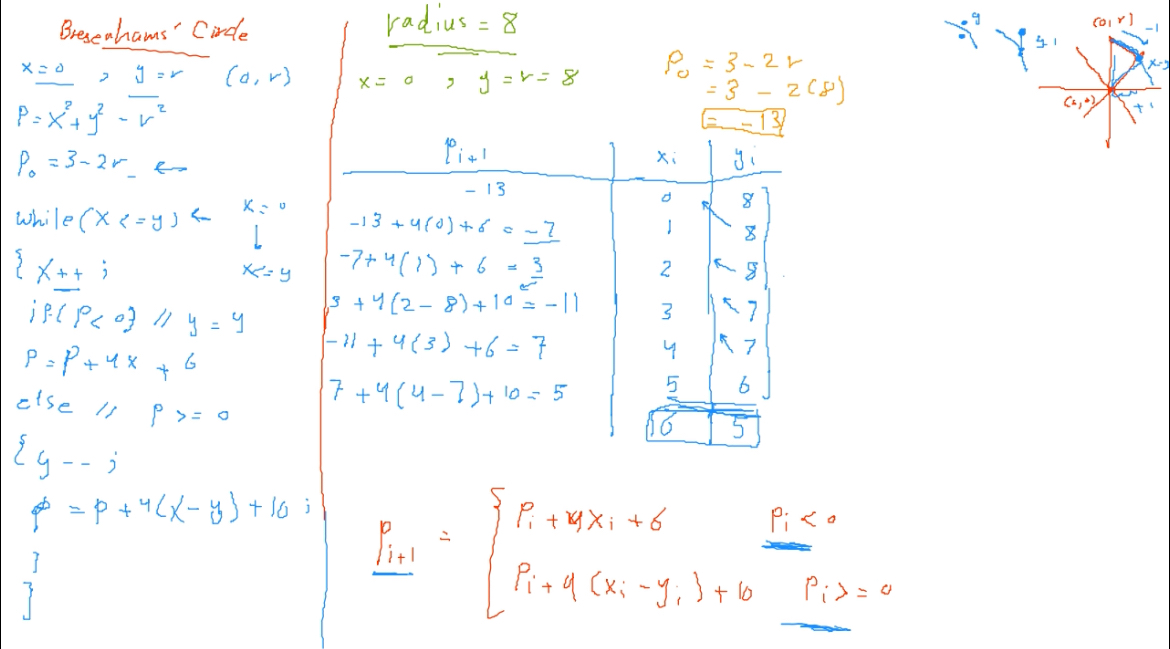 Bresenhams' Circle
x=0 , y=r (0,r)
P=x²+y²-r²
P₀=3-2r ←
while(x<=y) ← x=0
↓
x<=y
{ x++ ;
if(P<0} // y=y
P=P+4x+6
else // P>=0
{ y-- ;
P=P+4(x-y)+10;
}
}
radius=8
x=0 , y=r=8
P₀ = 3-2r
= 3 - 2(8)
= -13
Pᵢ₊₁ xᵢ yᵢ
-13 0 8
-13+4(0)+6 = -7 1 8
-7+4(1)+6 = 3 2 8
3+4(2-8)+10=-11 3 7
-11+4(3)+6=7 4 7
7+4(4-7)+10=5 5 6
5
Pᵢ₊₁ = { Pᵢ+4xᵢ+6 Pᵢ<0
Pᵢ+4(xᵢ-yᵢ)+10 Pᵢ>=0
y
y-1
(0,r)
-1
x=y
(0,0)
+1